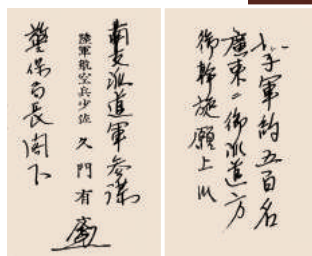 小学軍約五百名
廣東ニ御派遣方
御斡旋願上候
南支派遣軍参謀
陸軍航空兵少佐 久門有文
警保局長閣下